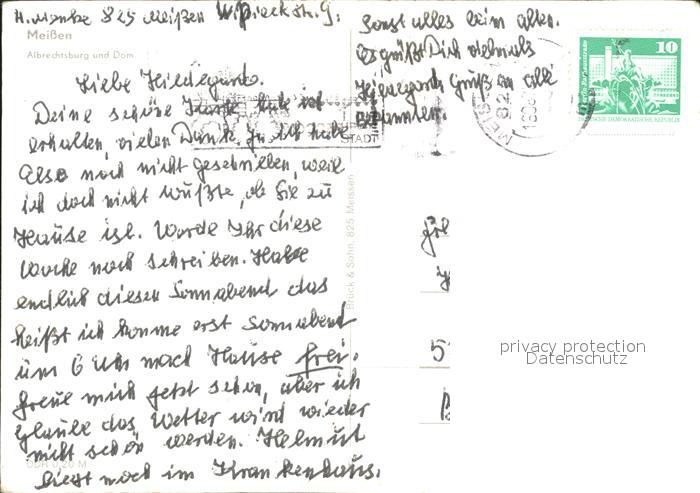 825 Meißen W. Pieck Str. 9.
Meißen
Albrechtsburg und Dom
Liebe Hildegard.
Deine schöne Karte habe ich
erhalten, vielen Dank. Ja, ich habe
Also noch nicht geschrieben, weil
ich doch nicht wußte, ob Sie zu
Hause ist. Werde Ihr diese
Woche noch schreiben. Habe
endlich diesen Sonnabend das
heißt ich komme erst Sonnabend
um 6 Uhr nach Hause frei.
freue mich jetzt schon, aber ich
glaube das Wetter wird wieder
nicht schön werden. Helmut
liegt noch im Krankenhaus.
DDR 0,20 M
Sonst alles beim alten.
Es grüßt Dich vielmals
Hildegard Gruß an alle
Bekannten.
STADT
Brück & Sohn, 825 Meissen
10
DEUTSCHE DEMOKRATISCHE REPUBLIK
5
privacy protection
Datenschutz